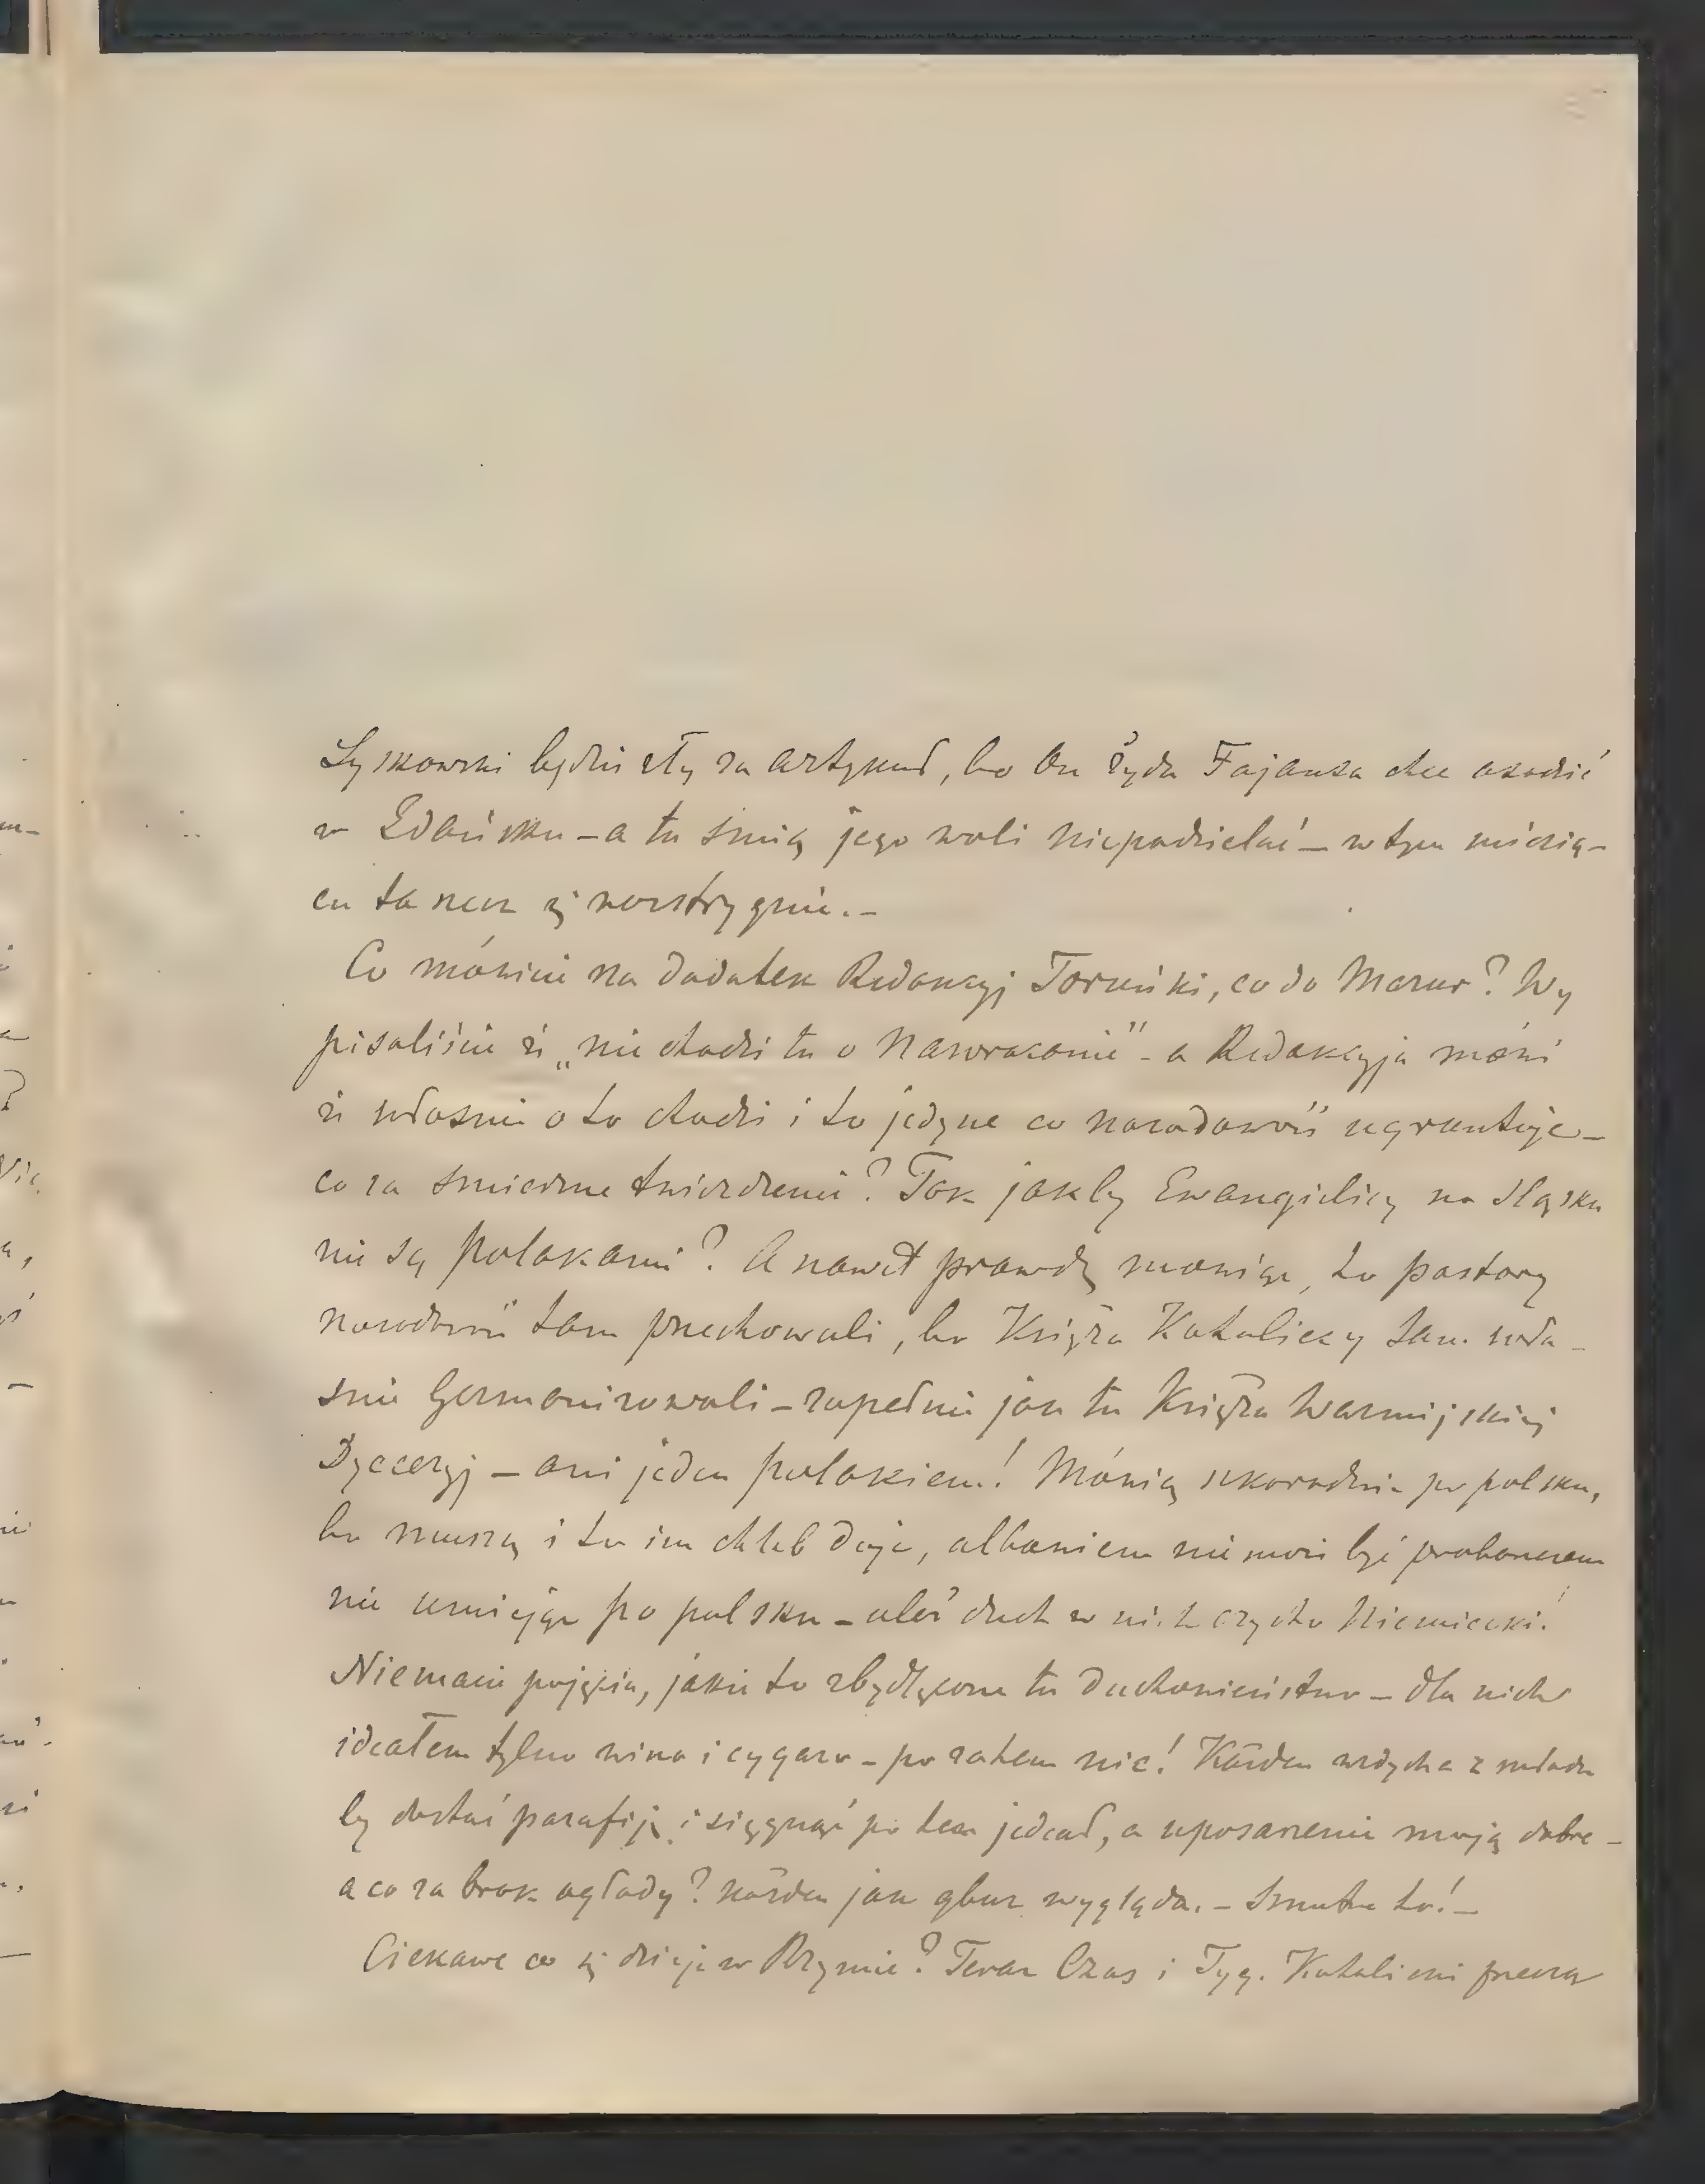 Łyskowski będzie zły za artykuł, bo On żyda Fajansa chce osadzić
w Gdańsku – a tu śmią jego woli niepodzielać – w tym miesią-
cu ta rzecz się rozstrzygnie. –
Co mówicie na dodatek Redakcyj Toruński, co do Mazur? Wy
pisaliście że „nie chodzi tu o Nawracanie" – a Redakcyja mówi
że własnie o to chodzi i to jedyne co narodowość ugruntuje –
co za smieszne twierdzenie? Tak jakby Ewangielicy na Sląsku
nie są polakami? A nawet prawdę mowiąc, to pastory
narodowość tam przechowali, bo Księża Katoliccy tam wła-
snie Germanizowali – zupełnie jak tu Księża Warmijskiej
Dyecezyj – ani jeden polakiem! Mówią szkaradnie po polsku,
bo muszą i to im chleb daje, albowiem nie może być proboszczem
nie umiejąc po polsku – aleź duch w nich czysto Niemiecki!
Niemacie pojęcia, jakie to zbydlęcone tu Duchowieństwo – dla nich
ideałem tylko wino i cygaro – po zatem nic! Każden wzdycha z młodu
by dostać parafiję i sięgnąć po ten jdeał, a uposarzenie mają dobre –
a co za brak ogłady? każden jak gbur wygląda. – Smutne to! –
Ciekawe co się dzieje w Rzymie? Teraz Czas i Tyg. Katolicki przeczą